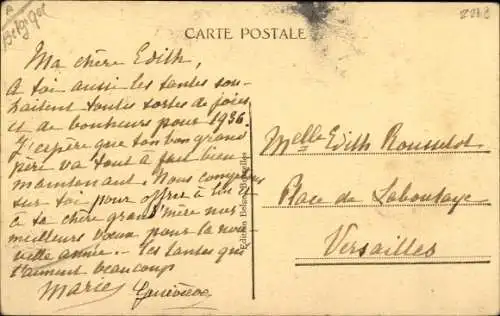 Belgique
2278
CARTE POSTALE
Ma chère Edith,
A toi aussi les tantes sou-
haitent toutes sortes de joies
et de bonheurs pour 1936.
J'espère que ton bon grand
père va tout à fait bien
maintenant. Nous comptons
sur toi pour offrir à lui et
à ta chère grand'mère nos
meilleurs vœux pour la nou-
velle année. Les tantes qui
t'aiment beaucoup
Marie, Geneviève
Edition Belge, Bruxelles
Melle Edith Rousselot
Place de Laboulaye
Versailles